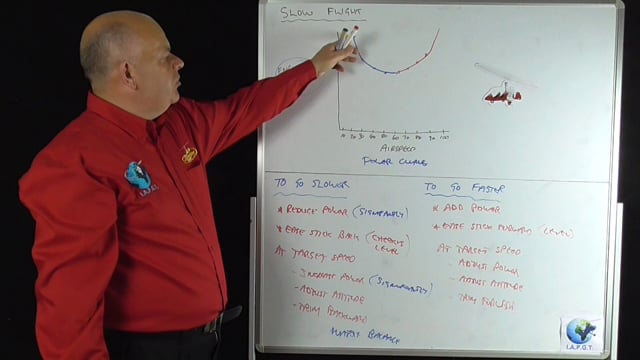 SLOW FLIGHT
10 20 30 40 50 60 70 80 90 100
AIRSPEED
POLAR CURVE
TO GO SLOWER
* REDUCE POWER (SIGNIFICANTLY)
* EASE STICK BACK (CHECKING LEVEL)
AT TARGET SPEED
- INCREASE POWER (SIGNIFICANTLY)
- ADJUST ATTITUDE
- TRIM BACKWARD
BALANCE
TO GO FASTER
* ADD POWER
* EASE STICK FORWARD (LEVEL)
AT TARGET SPEED
- ADJUST POWER
- ADJUST ATTITUDE
- TRIM FORWARD
I.A.P.G.T.